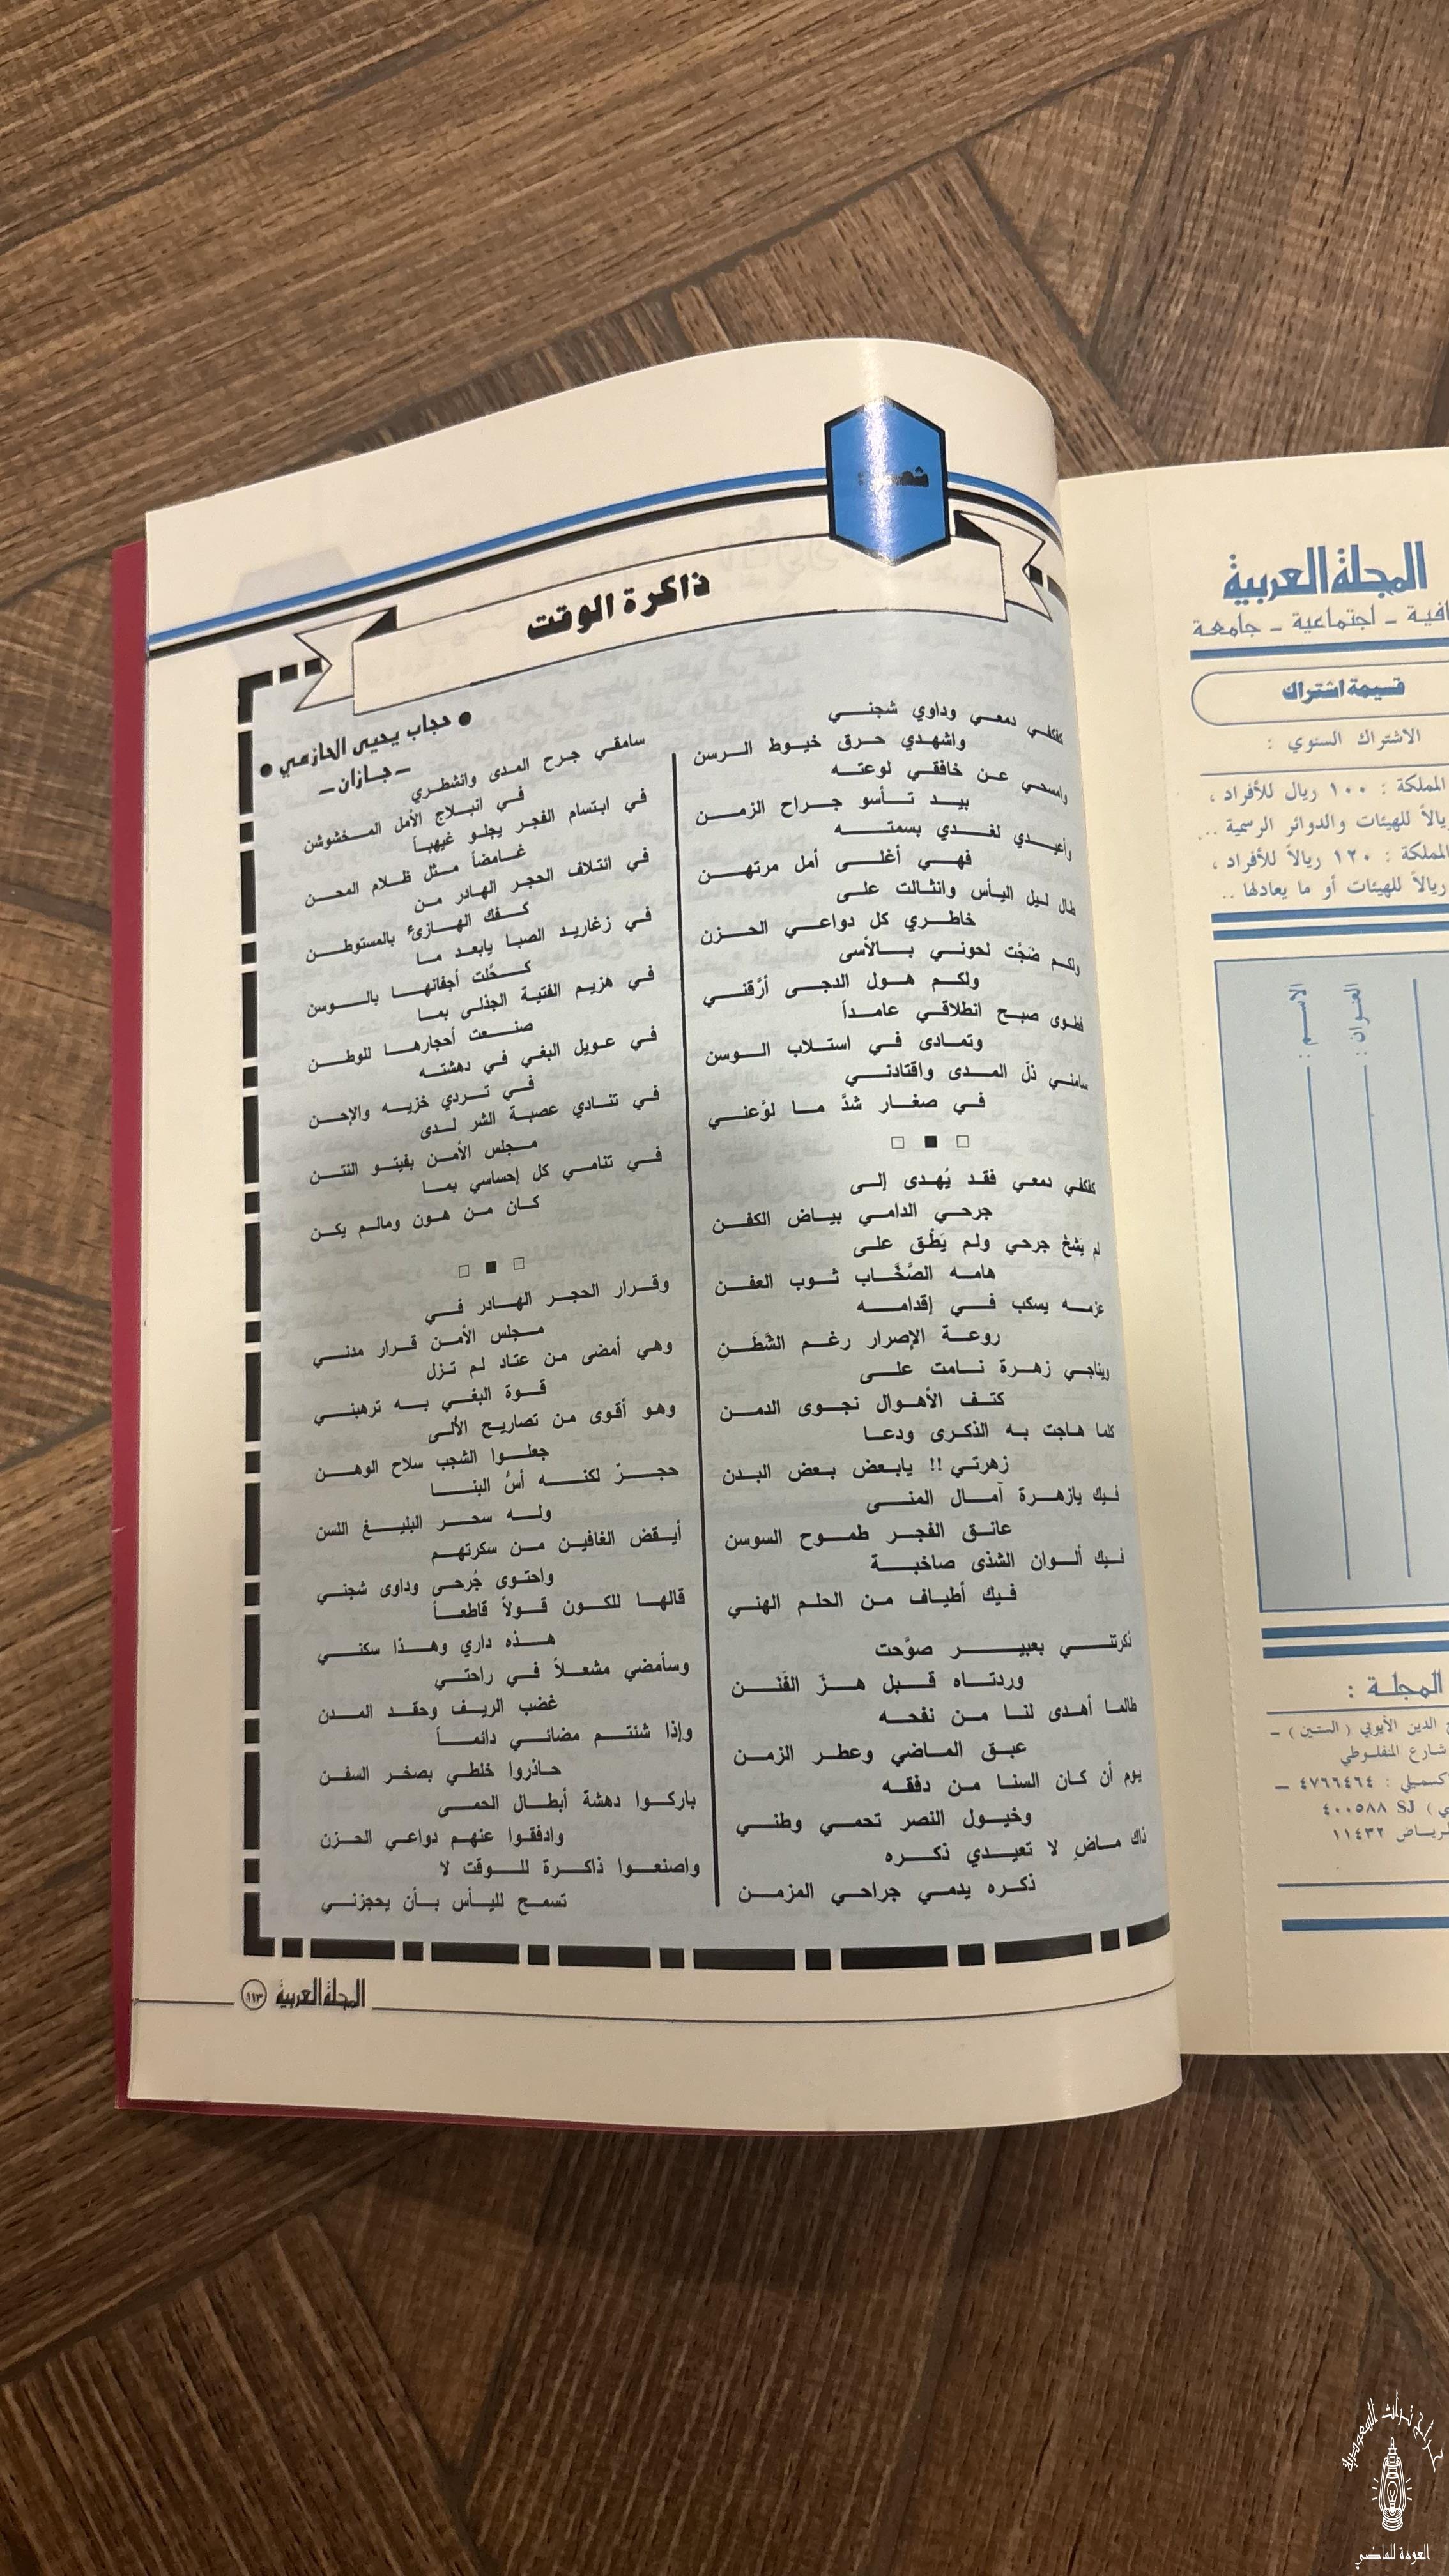 شعر :
ذاكرة الوقت
● حجاب يحيى الحازمي ●
ـ جازان ـ
كفكفي دمعي وداوي شجني
واشهدي حرق خيوط الرسن
وامسحي عن خافقي لوعته
بيد تأسو جراح الزمن
وأعيدي لغدي بسمته
فهي أغلى أمل مرتهن
طال ليل اليأس وانثالت على
خاطري كل دواعي الحزن
ولكم ضجَّت لحوني بالأسى
ولكم هول الدجى أرَّقني
فطوى صبح انطلاقي عامداً
وتمادى في استلاب الوسن
سامني ذلّ المدى واقتادني
في صغار شدَّ ما لوَّعني
□ ■ □
كفكفي دمعي فقد يُهدى إلى
جرحي الدامي بياض الكفن
لم يَشخْ جرحي ولم يَطْق على
هامه الصَّخَّاب ثوب العفن
عزمه يسكب في إقدامه
روعة الإصرار رغم الشَّطَنِ
ويناجي زهرة نامت على
كتف الأهوال نجوى الدمن
كلما هاجت به الذكرى ودعا
زهرتي !! يابعض بعض البدن
فيك يازهرة آمال المنى
عانق الفجر طموح السوسن
فيك ألوان الشذى صاخبة
فيك أطياف من الحلم الهني
ذكرتني بعبير صوَّحت
وردتاه قبل هزّ الفَنَن
طالما أهدى لنا من نفحه
عبق الماضي وعطر الزمن
يوم أن كان السنا من دفقه
وخيول النصر تحمي وطني
ذاك ماضٍ لا تعيدي ذكره
ذكره يدمي جراحي المزمن
سامقي جرح المدى وانشطري
في انبلاج الأمل المخشوشن
في ابتسام الفجر يجلو غيهباً
غامضاً مثل ظلام المحن
في ائتلاف الحجر الهادر من
كفك الهازئ بالمستوطن
في زغاريد الصبا يابعد ما
كحَّلت أجفانها بالوسن
في هزيم الفتية الجذلى بما
صنعت أحجارها للوطن
في عويل البغي في دهشته
في تردي خزيه والإحن
في تنادي عصبة الشر لدى
مجلس الأمن بفيتو النتن
في تنامي كل إحساسي بما
كان من هون ومالم يكن
□ ■ □
وقرار الحجر الهادر في
مجلس الأمن قرار مدني
وهي أمضى من عتاد لم تزل
قوة البغي به ترهبني
وهو أقوى من تصاريح الألى
جعلوا الشجب سلاح الوهن
حجرٌ لكنه أسُّ البنا
وله سحر البليغ اللسن
أيقض الغافين من سكرتهم
واحتوى جُرحى وداوى شجني
قالها للكون قولاً قاطعاً
هذه داري وهذا سكني
وسأمضي مشعلاً في راحتي
غضب الريف وحقد المدن
وإذا شئتم مضائي دائماً
حاذروا خلطي بصخر السفن
باركوا دهشة أبطال الحمى
وادفقوا عنهم دواعي الحزن
واصنعوا ذاكرة للوقت لا
تسمح لليأس بأن يحجزني
المجلة العربية ١١٣
المجلة العربية
ـ اجتماعية ـ جامعة
قسيمة اشتراك
الاشتراك السنوي :
المملكة : ١٠٠ ريال للأفراد ،
ريالاً للهيئات والدوائر الرسمية ...
المملكة : ١٢٠ ريالاً للأفراد ،
ريالاً للهيئات أو ما يعادلها ..
الاسم :
العنوان :
المجلة :
الدين الأيوبي ( الستين ) ـ
شارع المنفلوطي
٤٧٦٦٤٦٤ ـ
SJ ٤٠٠٥٨٨
١١٤٣٢
حراج تراث السعودية
العودة للماضي